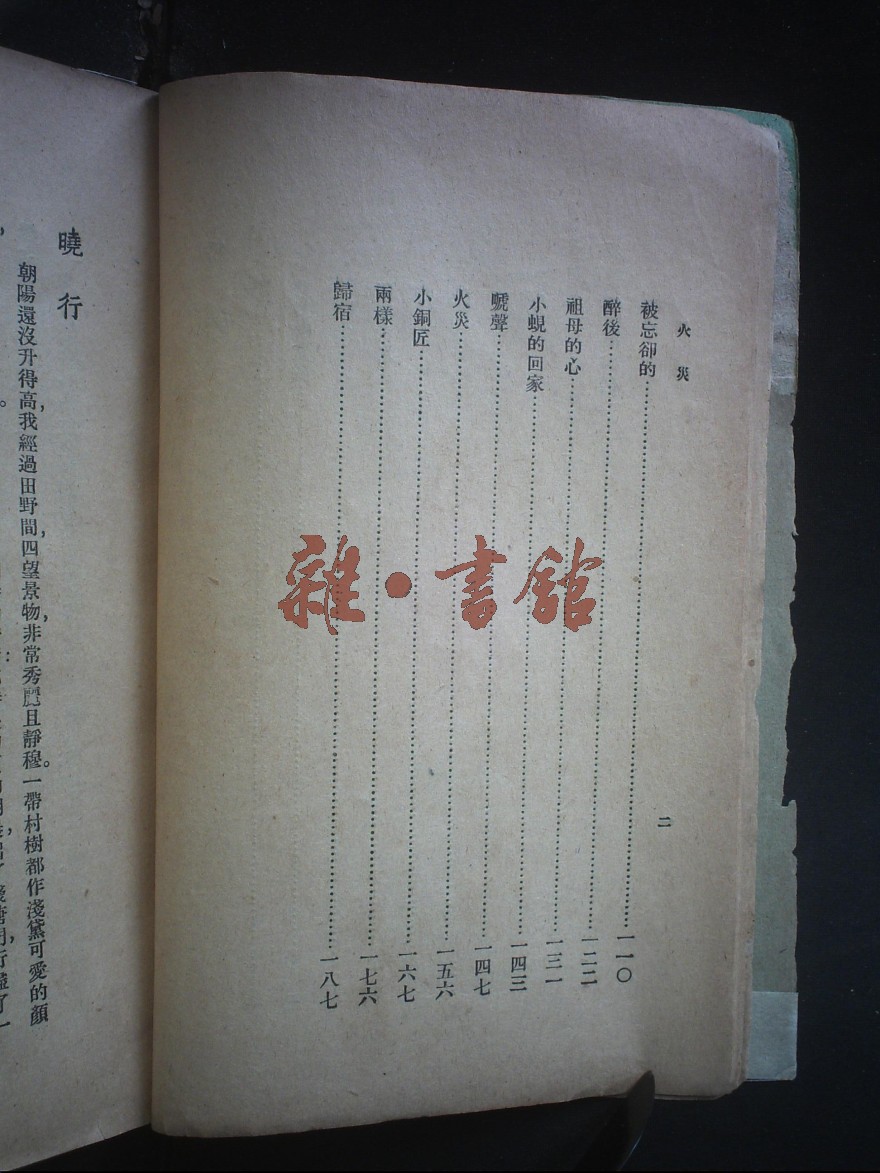 火災
二
被忘卻的……一一〇
醉後……一二二
祖母的心……一三一
小蜆的回家……一四三
嗁聲……一四七
火災……一五六
小銅匠……一六七
兩樣……一七六
歸宿……一八七
雜·書館
曉行
朝陽還沒升得高,我經過田野間,四望景物,非常秀麗且靜穆。一帶村樹都作淺黛可愛的顏